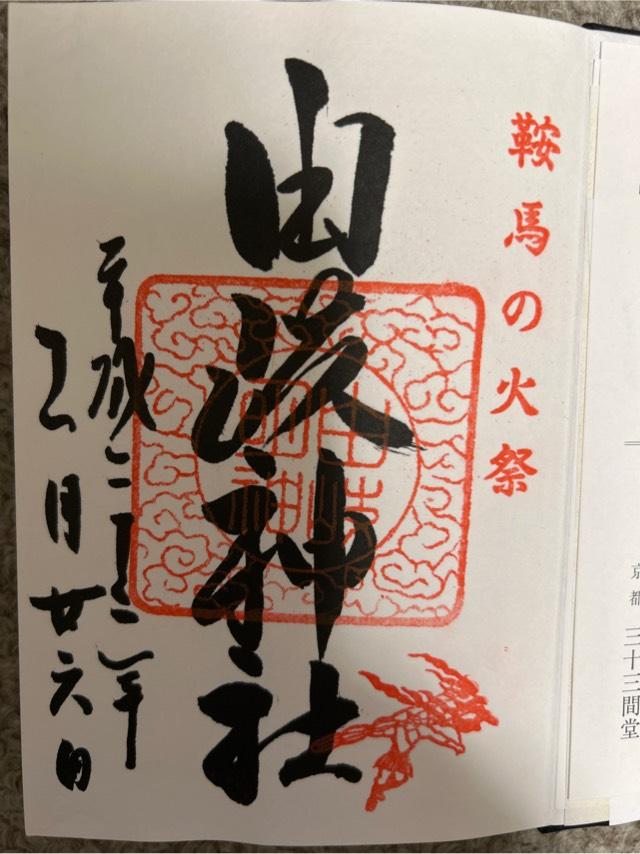 鞍馬の火祭
由岐神社
平成二十年
月廿六日
由岐
明神
京都 三十三間堂